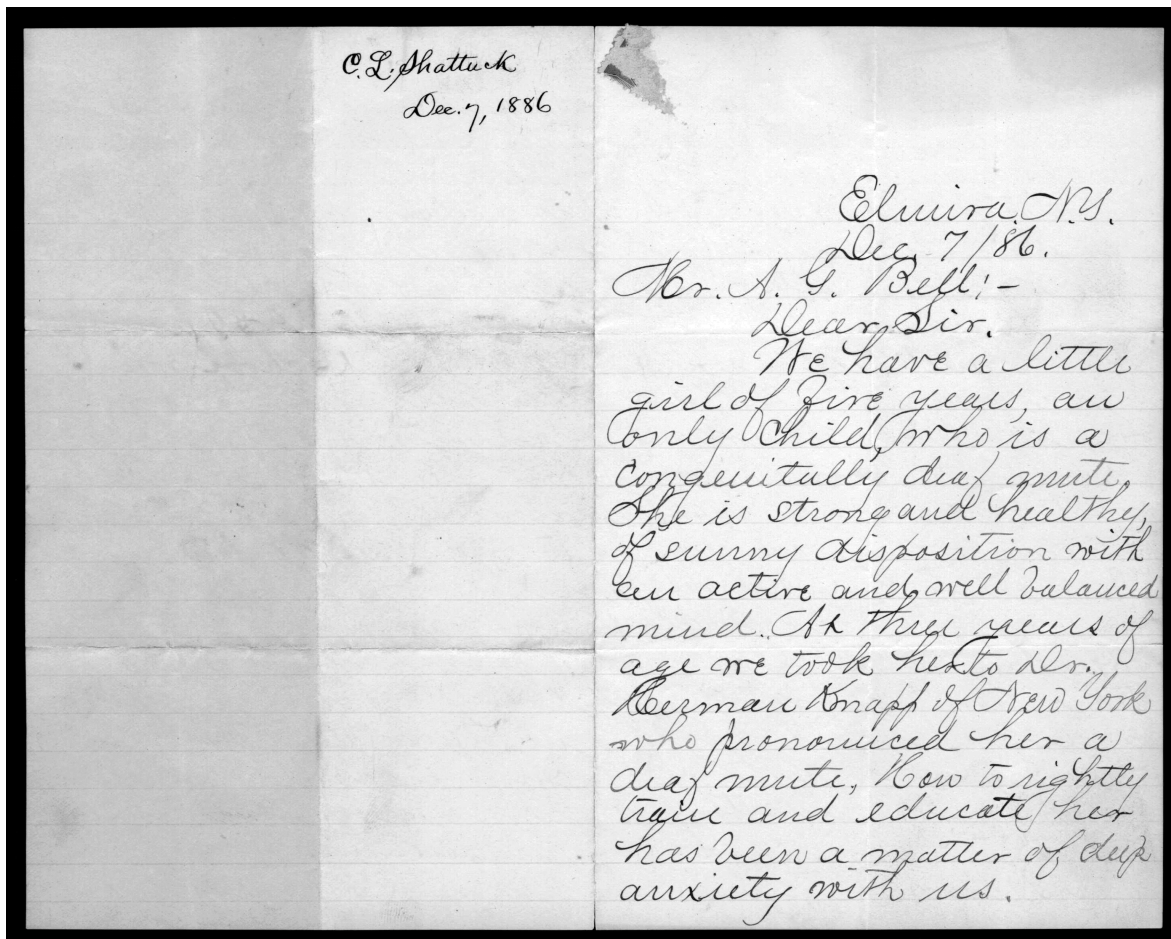 C. L. Shattuck
Dec. 7, 1886
Elmira N.Y.
Dec. 7/86.
Mr. A. G. Bell:-
Dear Sir.
We have a little
girl of five years, an
only child, who is a
congenitally deaf mute.
She is strong and healthy,
of sunny disposition with
an active and well balanced
mind. At three years of
age we took her to Dr.
Herman Knapp of New York
who pronounced her a
deaf mute. How to rightly
train and educate her
has been a matter of deep
anxiety with us.